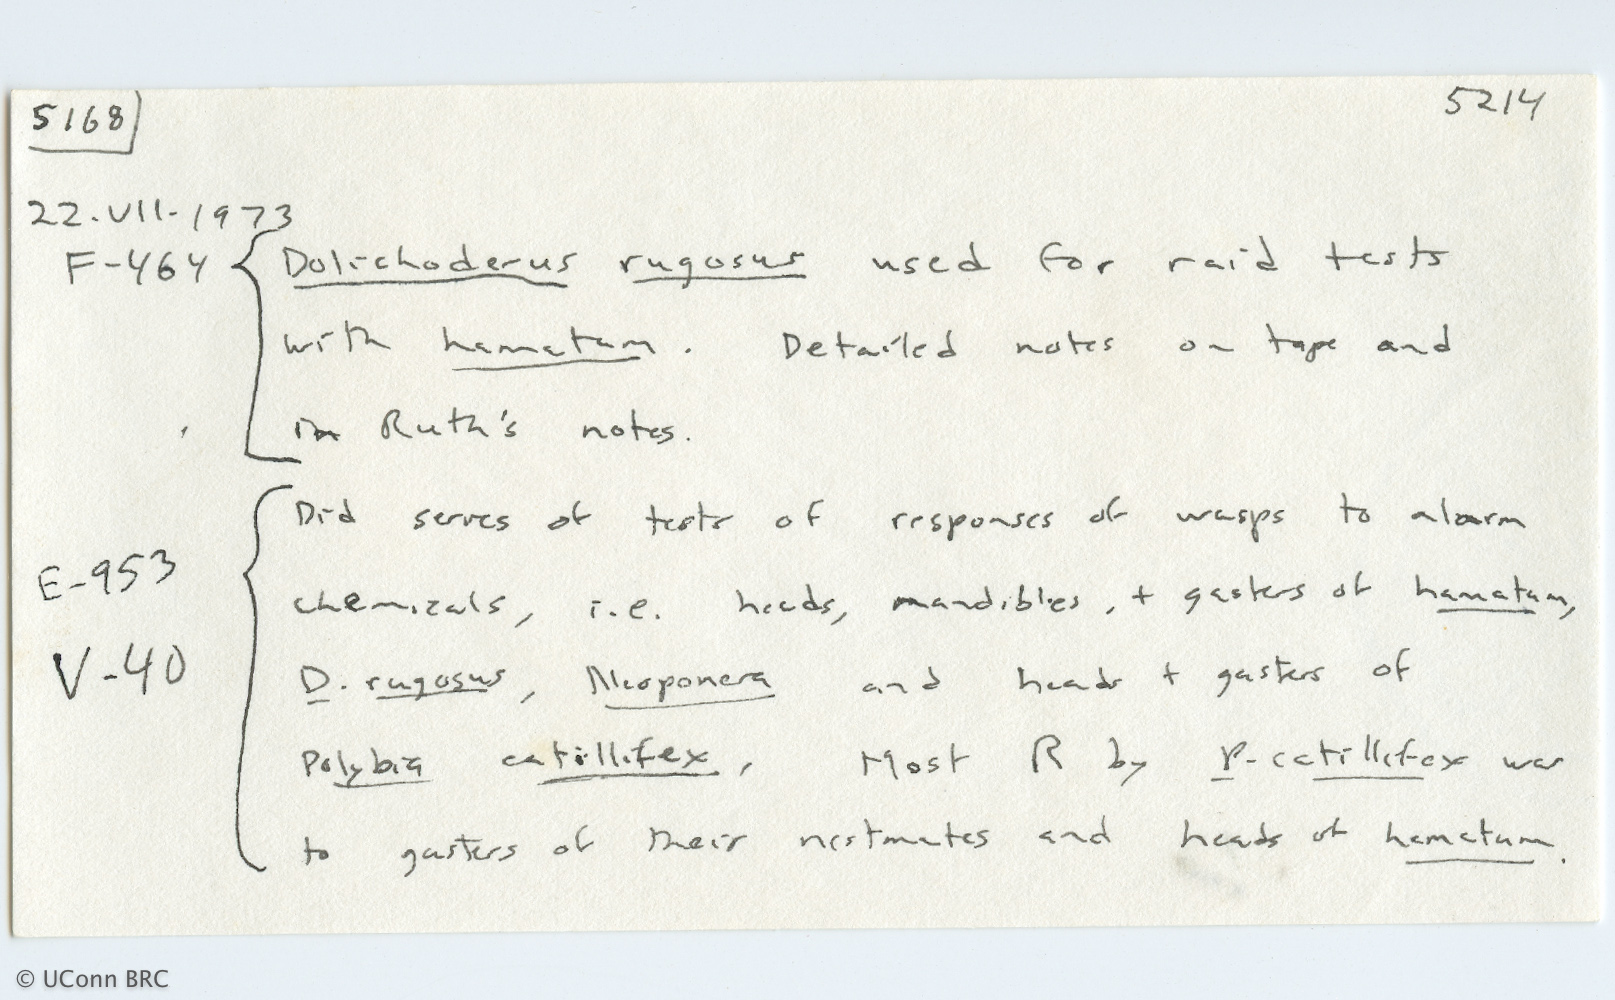 5168 5214
22.VII.1973
F-464 Dolichoderus rugosus used for raid tests
with hamatum. Detailed notes on tape and
in Ruth's notes.
Did series of tests of responses of wasps to alarm
E-953 chemicals, i.e. heads, mandibles, + gasters of hamatum,
V-40 D. rugosus, Neoponera and heads + gasters of
Polybia catillifex, Most R by P. catillifex was
to gasters of their nestmates and heads of hamatum.
© UConn BRC